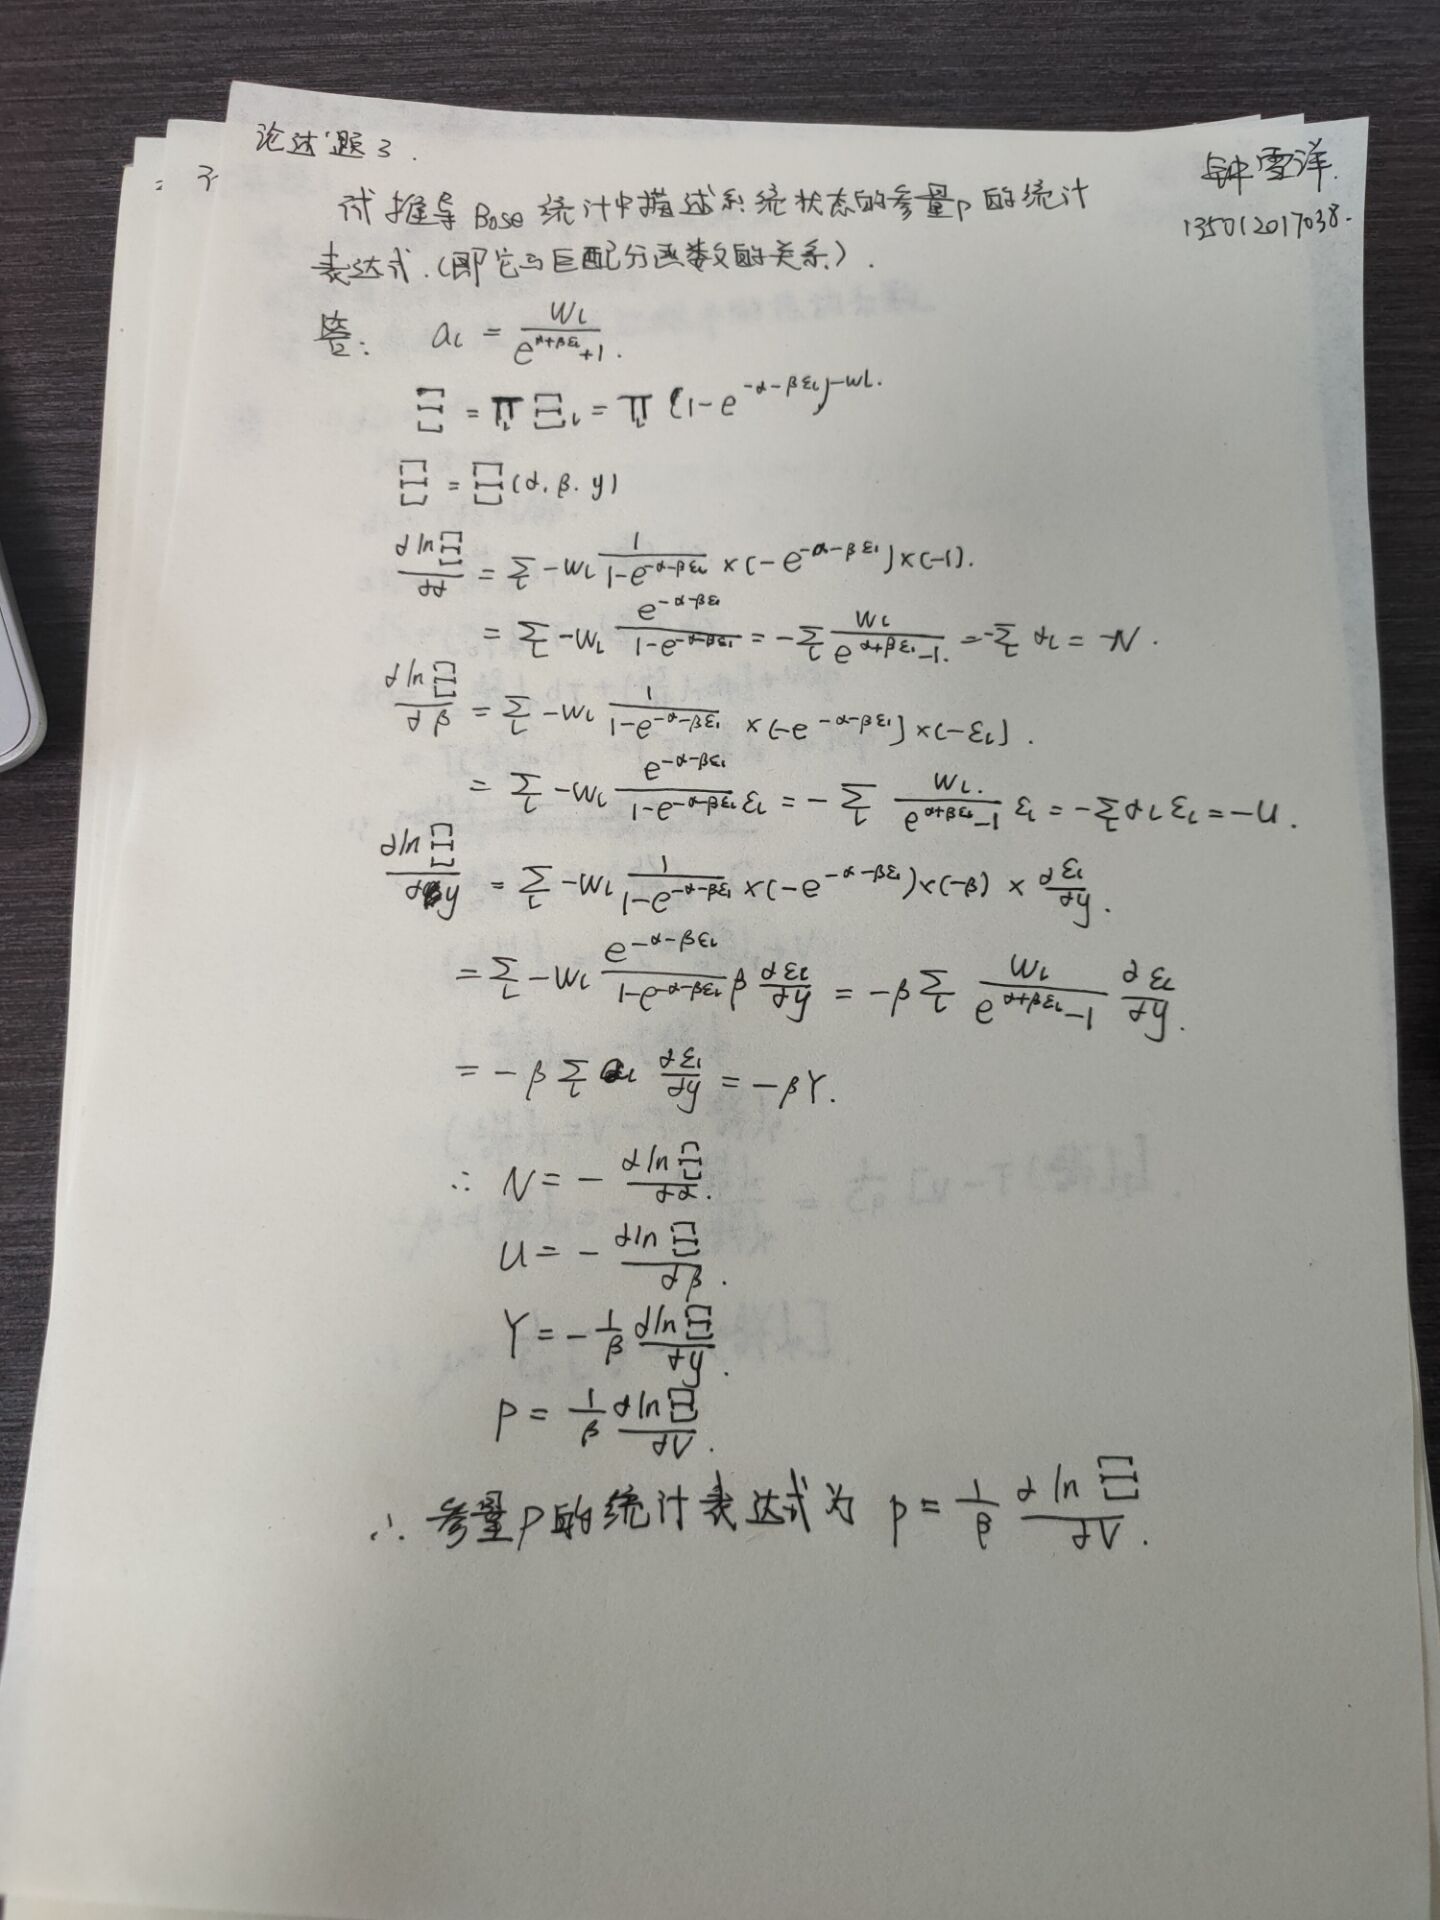 论述题3.
钟雪洋.
135012017038.
= 于
试推导Bose统计中描述系统状态的参量p的统计
表达式.(即它与巨配分函数的关系).
答: a_l = ω_l / (e^{α+βε_l}+1).
Ξ = π_l Ξ_l = π_l [1-e^{-α-βε_l}]^{-ω_l}.
Ξ = Ξ(α, β. y)
∂lnΞ/∂α = Σ_l -ω_l 1/(1-e^{-α-βε_l}) × (-e^{-α-βε_l}) × (-1).
= Σ_l -ω_l e^{-α-βε_l}/(1-e^{-α-βε_l}) = -Σ_l ω_l/(e^{α+βε_l}-1). = -Σ_l α_l = -N.
∂lnΞ/∂β = Σ_l -ω_l 1/(1-e^{-α-βε_l}) × (-e^{-α-βε_l}) × (-ε_l).
= Σ_l -ω_l e^{-α-βε_l}/(1-e^{-α-βε_l}) ε_l = -Σ_l ω_l./(e^{α+βε_l}-1) ε_l = -Σ_l α_l ε_l = -U.
∂lnΞ/∂y = Σ_l -ω_l 1/(1-e^{-α-βε_l}) × (-e^{-α-βε_l}) × (-β) × ∂ε_l/∂y.
= Σ_l -ω_l e^{-α-βε_l}/(1-e^{-α-βε_l}) β ∂ε_l/∂y = -β Σ_l ω_l/(e^{α+βε_l}-1) ∂ε_l/∂y.
= -β Σ_l a_l ∂ε_l/∂y = -βY.
∴ N = - ∂lnΞ/∂α.
U = - ∂lnΞ/∂β.
Y = - 1/β ∂lnΞ/∂y.
P = 1/β ∂lnΞ/∂V.
∴ 参量P的统计表达式为 p = 1/β ∂lnΞ/∂V.